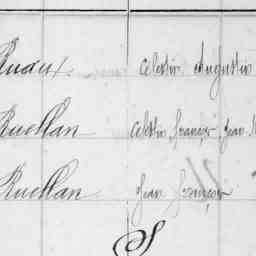 Ruaux Celestin Augustin
Ruellan Celestin François Jean M
Ruellan Jean François
S